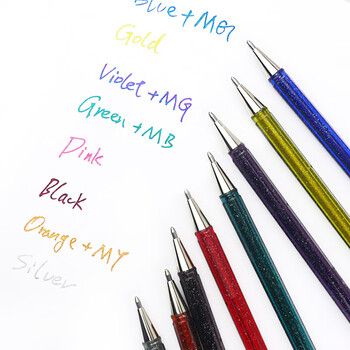 Blue + MG
Gold
Violet + MG
Green + MB
Pink
Black
Orange + MY
Silver